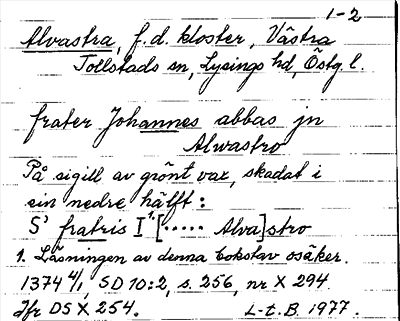 1-2
Alvastra, f.d. kloster, Västra
Tollstads sn, Lysings hd, Östg.l.
frater Johannes abbas jn
Alwastro
På sigill av grönt vax, skadat i
sin nedre hälft:
S' fratris I¹·[····· Alva]stro
1. Läsningen av denna bokstav osäker.
1374 4/1, SD 10:2, s. 256, nr X 294.
Jfr DS X 254. L-t. B. 1977.